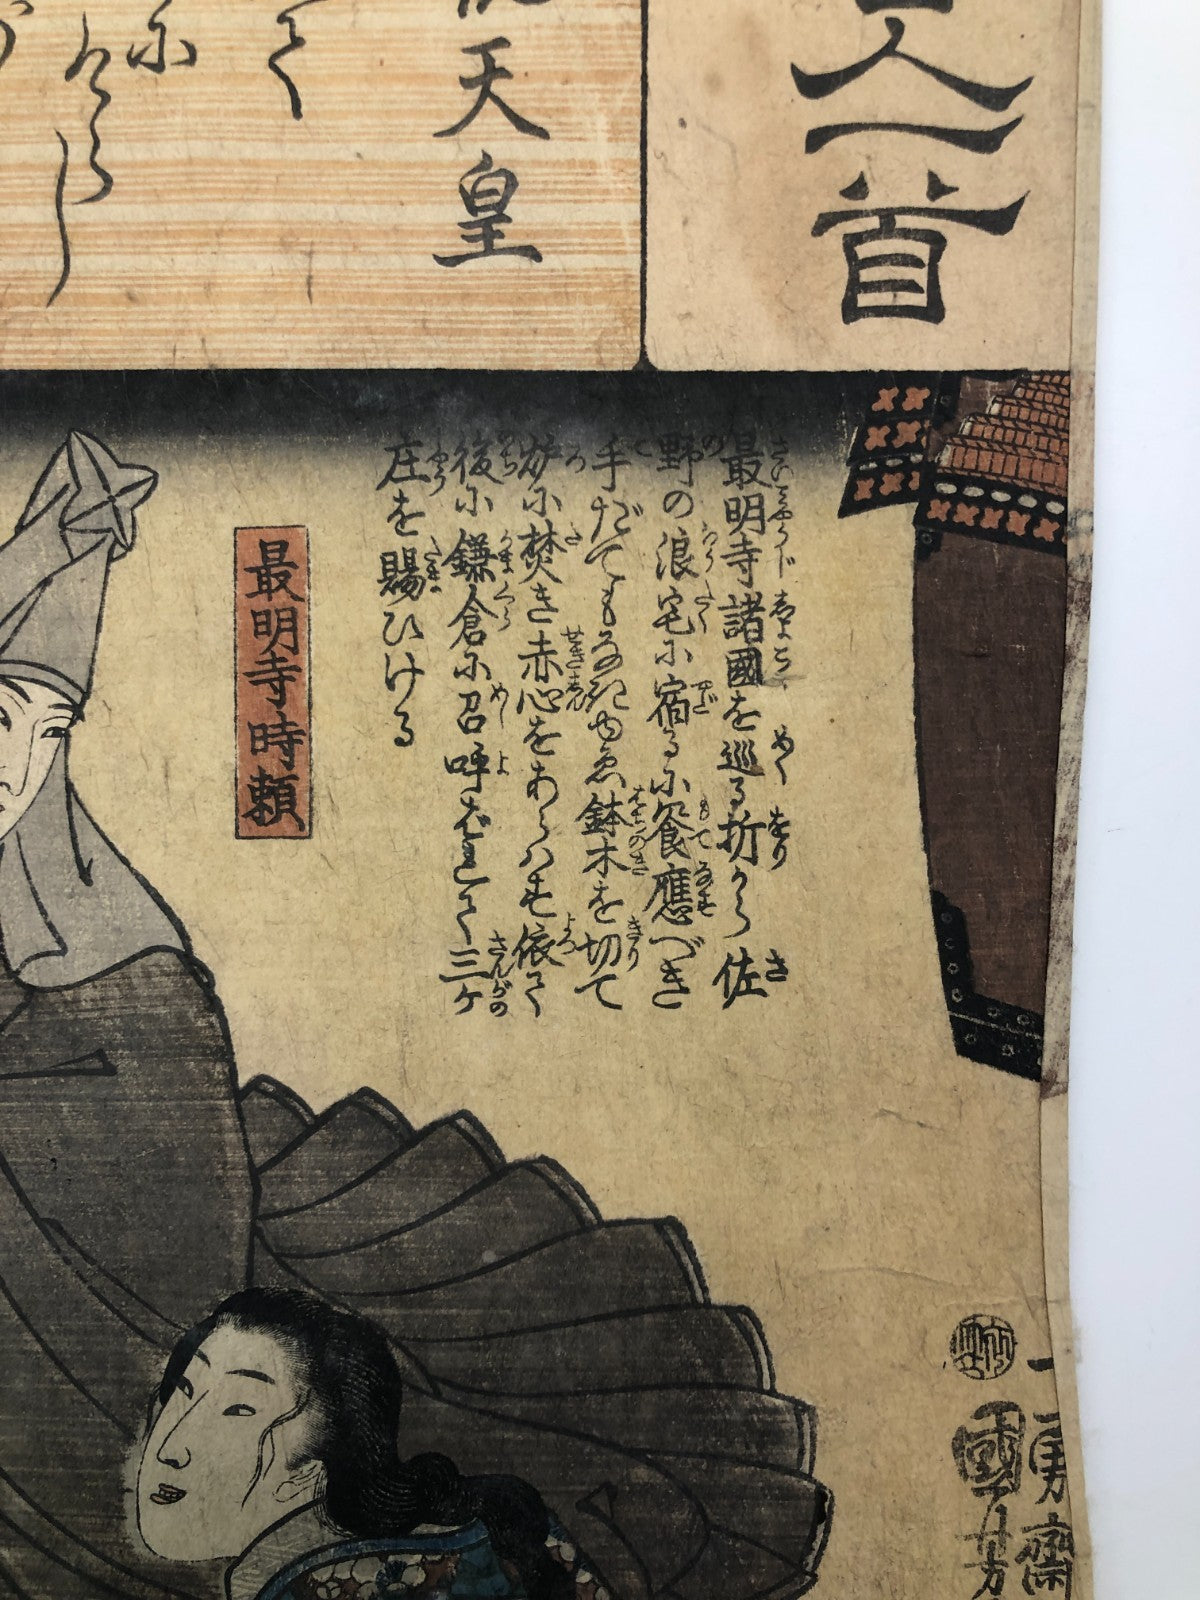 人一首
天皇
て
最明寺諸國を巡る折から佐
野の浪宅に宿るに饗應べき
手だてもなきゆゑ鉢木を切て
炉に焚き赤心をあらはす依て
後に鎌倉に召呼だして三ケ
庄を賜ひける
最明寺時頼
一勇齋
國芳